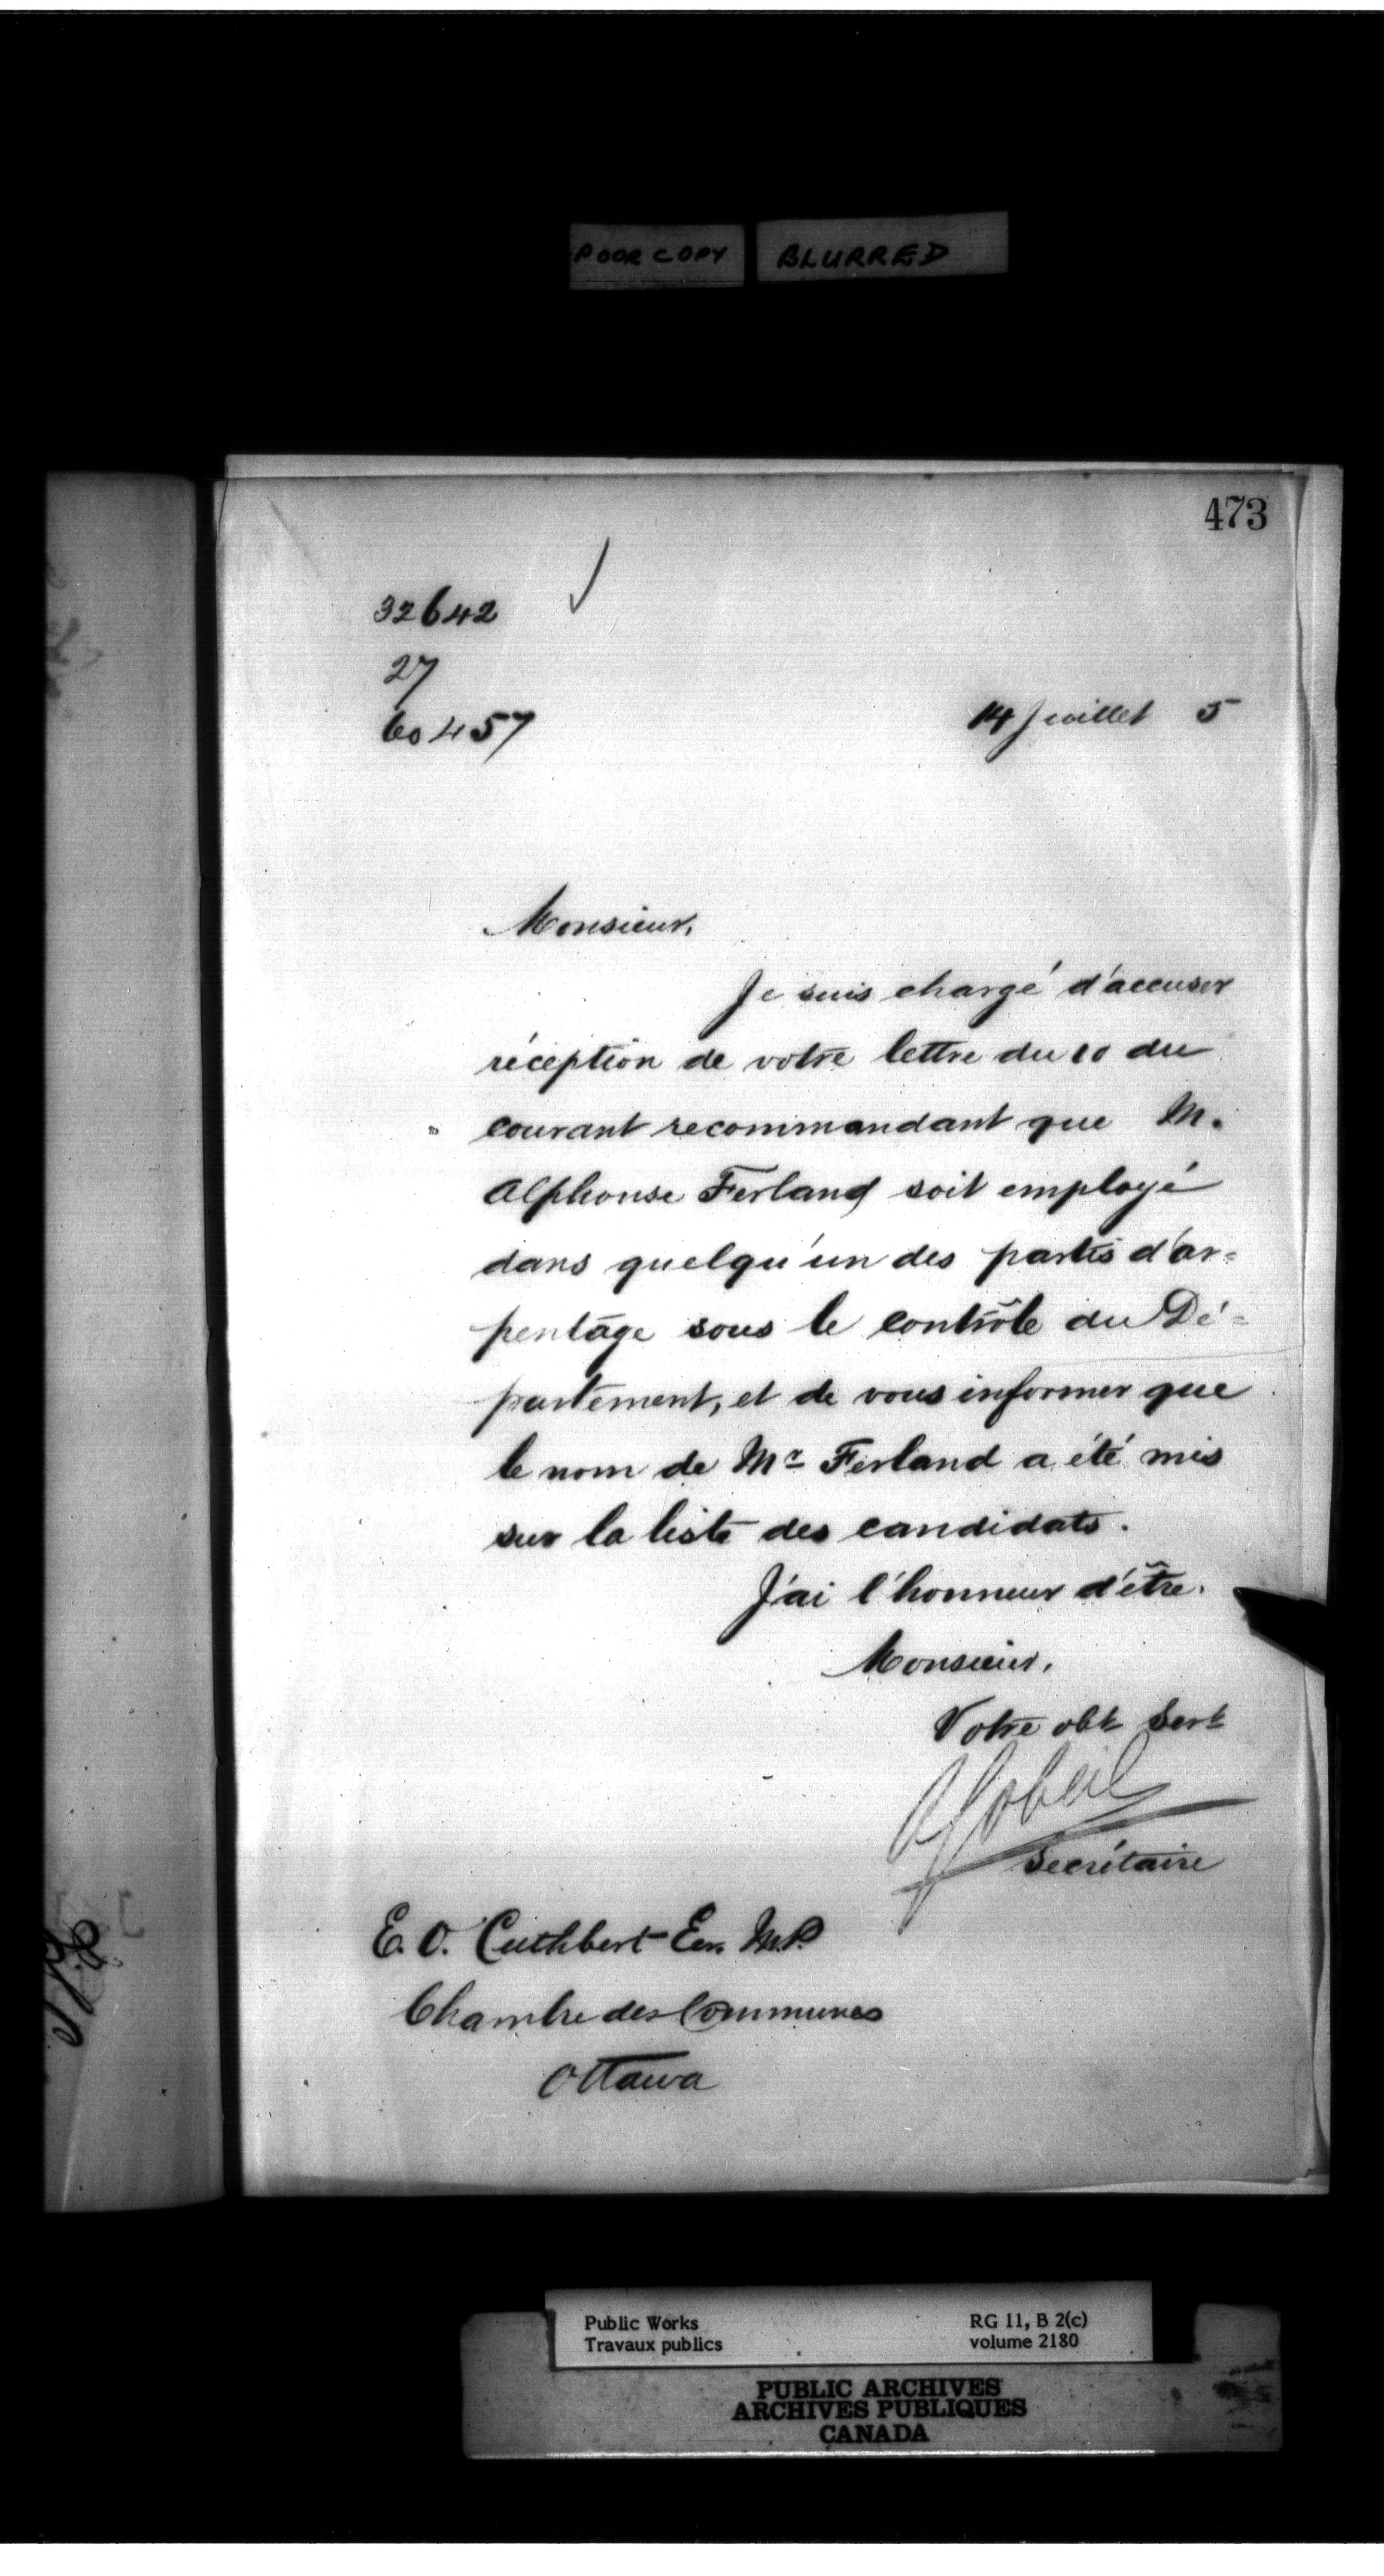 POOR COPY BLURRED
473
32642
27
60457
14 Juillet 5
Monsieur,
Je suis chargé d'accuser
réception de votre lettre du 10 du
courant recommandant que M.
Alphonse Ferland soit employé
dans quelqu'un des partis d'ar=
pentage sous le contrôle du Dé=
partement, et de vous informer que
le nom de Mr Ferland a été mis
sur la liste des candidats.
J'ai l'honneur d'être.
Monsieur,
Votre obt Sert
A Gobeil
Secrétaire
E. O. Cuthbert Ecr. M.P.
Chambre des Communes
Ottawa
Public Works RG 11, B 2(c)
Travaux publics volume 2180
PUBLIC ARCHIVES
ARCHIVES PUBLIQUES
CANADA